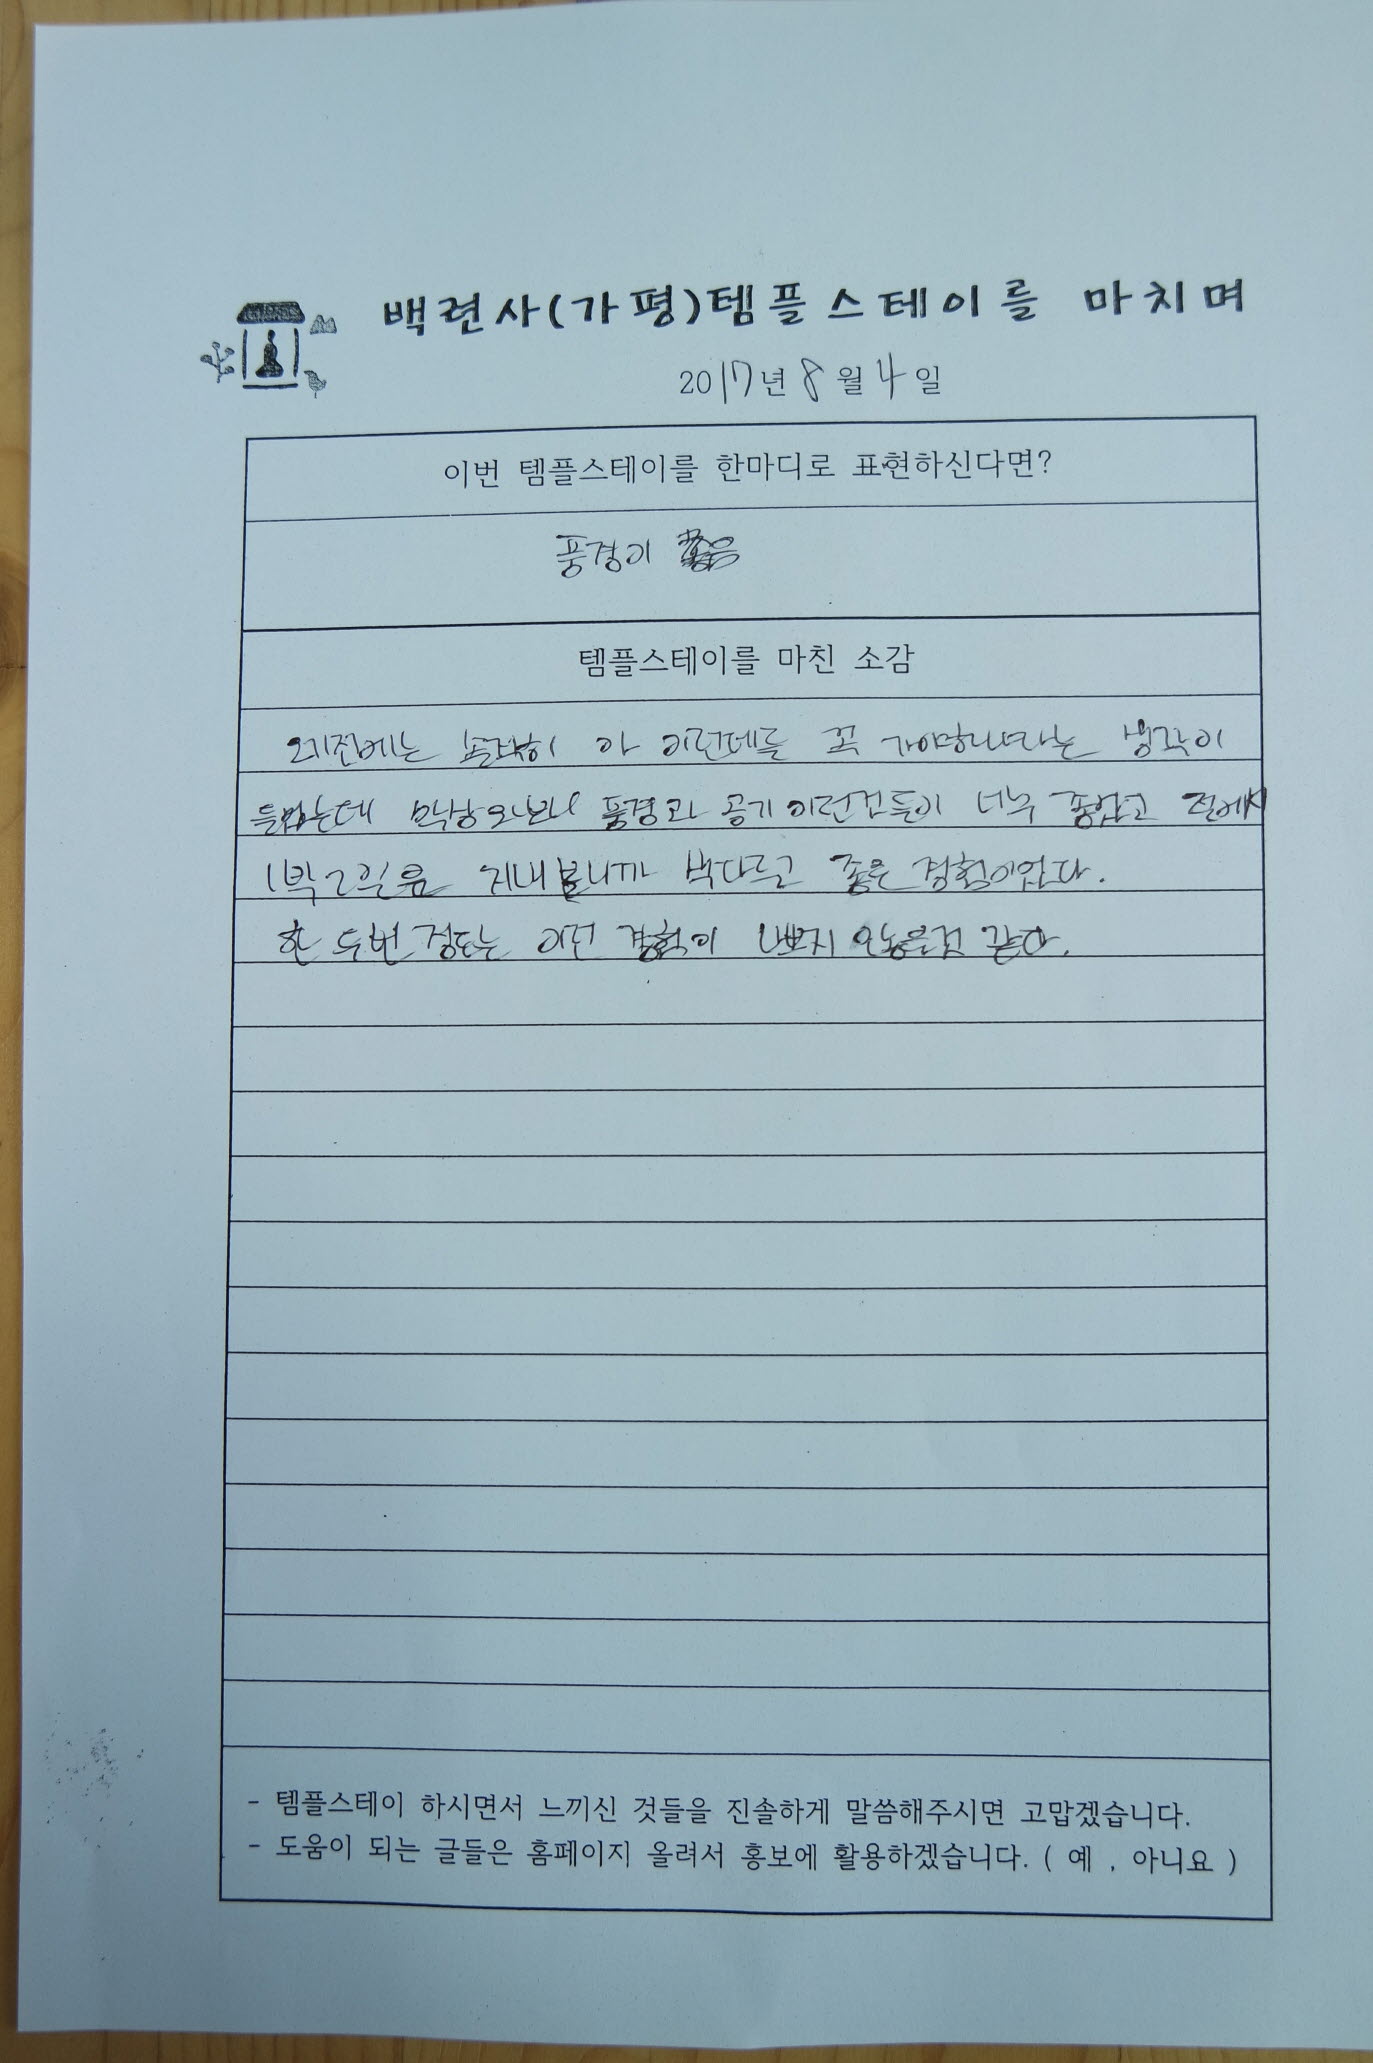 백련사(가평)템플스테이를 마치며
2017년 8월 4일
이번 템플스테이를 한마디로 표현하신다면?
풍경이
템플스테이를 마친 소감
예전에는 솔직히 아 이런데를 꼭 가야하나라는 생각이
들었는데 막상 와보니 풍경과 공기 이런것들이 너무 좋았고 절에서
1박 2일을 지내보니까 색다르고 좋은 경험이었다.
한 두번 정도는 이런 경험이 나쁘지 않을것 같다.
- 템플스테이 하시면서 느끼신 것들을 진솔하게 말씀해주시면 고맙겠습니다.
- 도움이 되는 글들은 홈페이지 올려서 홍보에 활용하겠습니다. ( 예 , 아니요 )